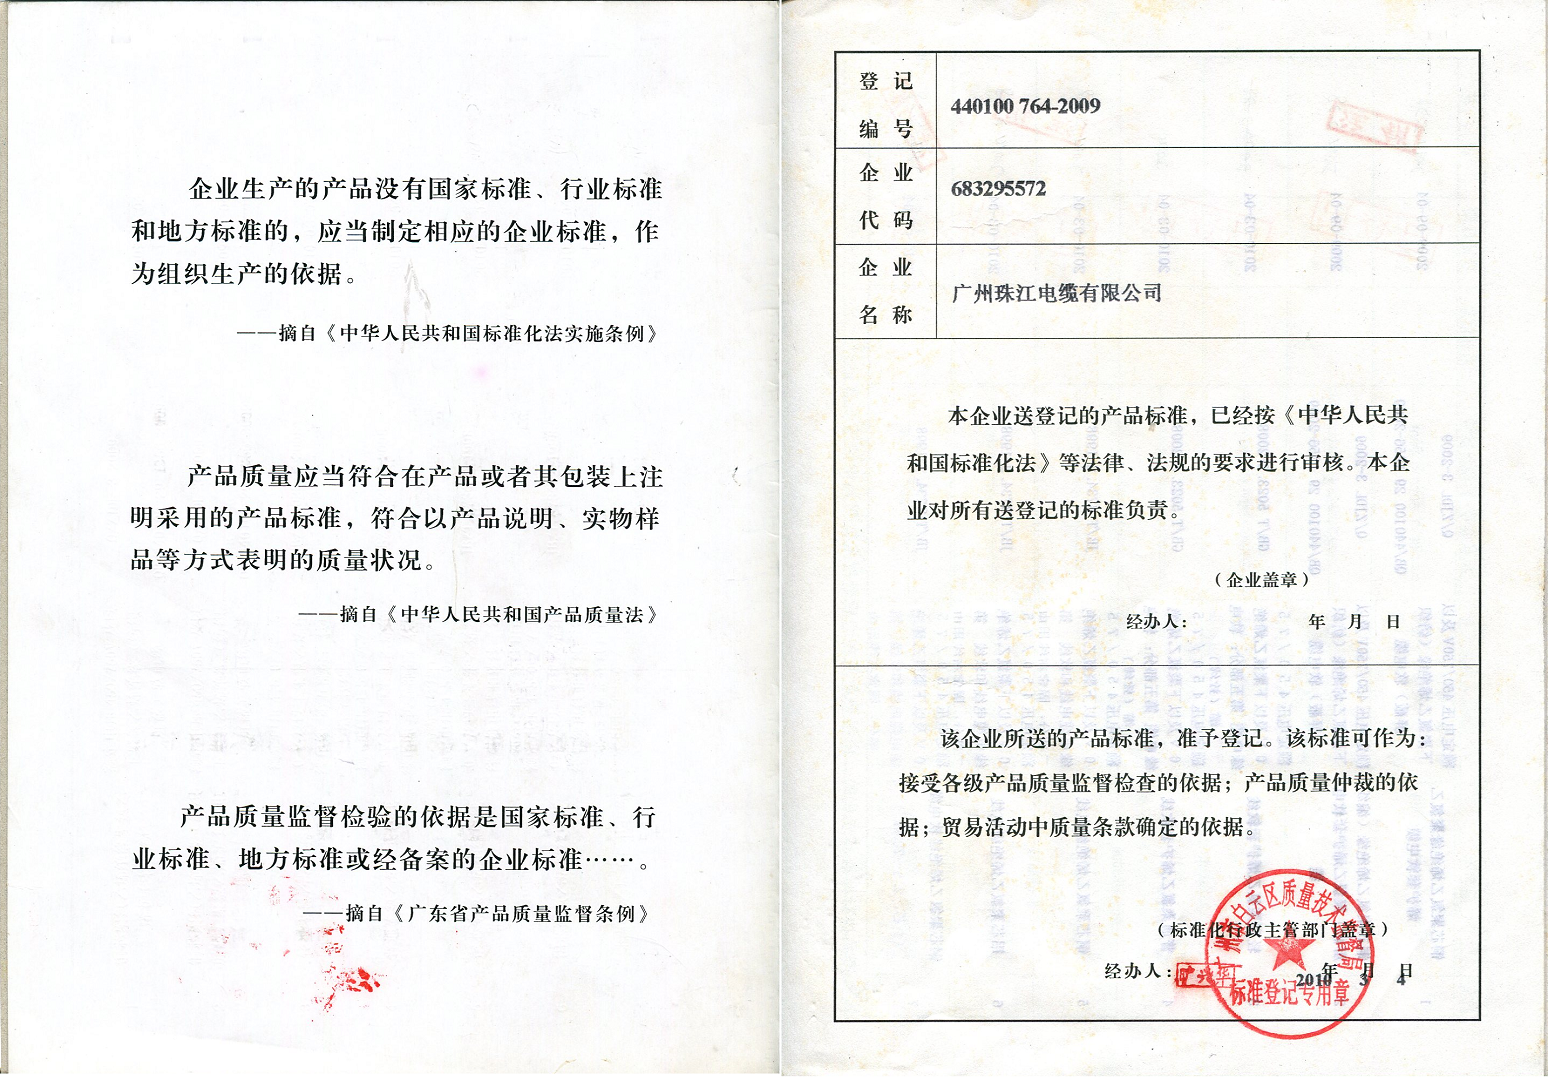 企业生产的产品没有国家标准、行业标准
和地方标准的，应当制定相应的企业标准，作
为组织生产的依据。
——摘自《中华人民共和国标准化法实施条例》
产品质量应当符合在产品或者其包装上注
明采用的产品标准，符合以产品说明、实物样
品等方式表明的质量状况。
——摘自《中华人民共和国产品质量法》
产品质量监督检验的依据是国家标准、行
业标准、地方标准或经备案的企业标准……。
——摘自《广东省产品质量监督条例》
登记
编号
440100 764-2009
企业
代码
683295572
企业
名称
广州珠江电缆有限公司
本企业送登记的产品标准，已经按《中华人民共
和国标准化法》等法律、法规的要求进行审核。本企
业对所有送登记的标准负责。
（企业盖章）
经办人： 年 月 日
该企业所送的产品标准，准予登记。该标准可作为：
接受各级产品质量监督检查的依据；产品质量仲裁的依
据；贸易活动中质量条款确定的依据。
广州市白云区质量技术监督局
（标准化行政主管部门盖章）
经办人： 2010 年 3 月 4 日
标准登记专用章